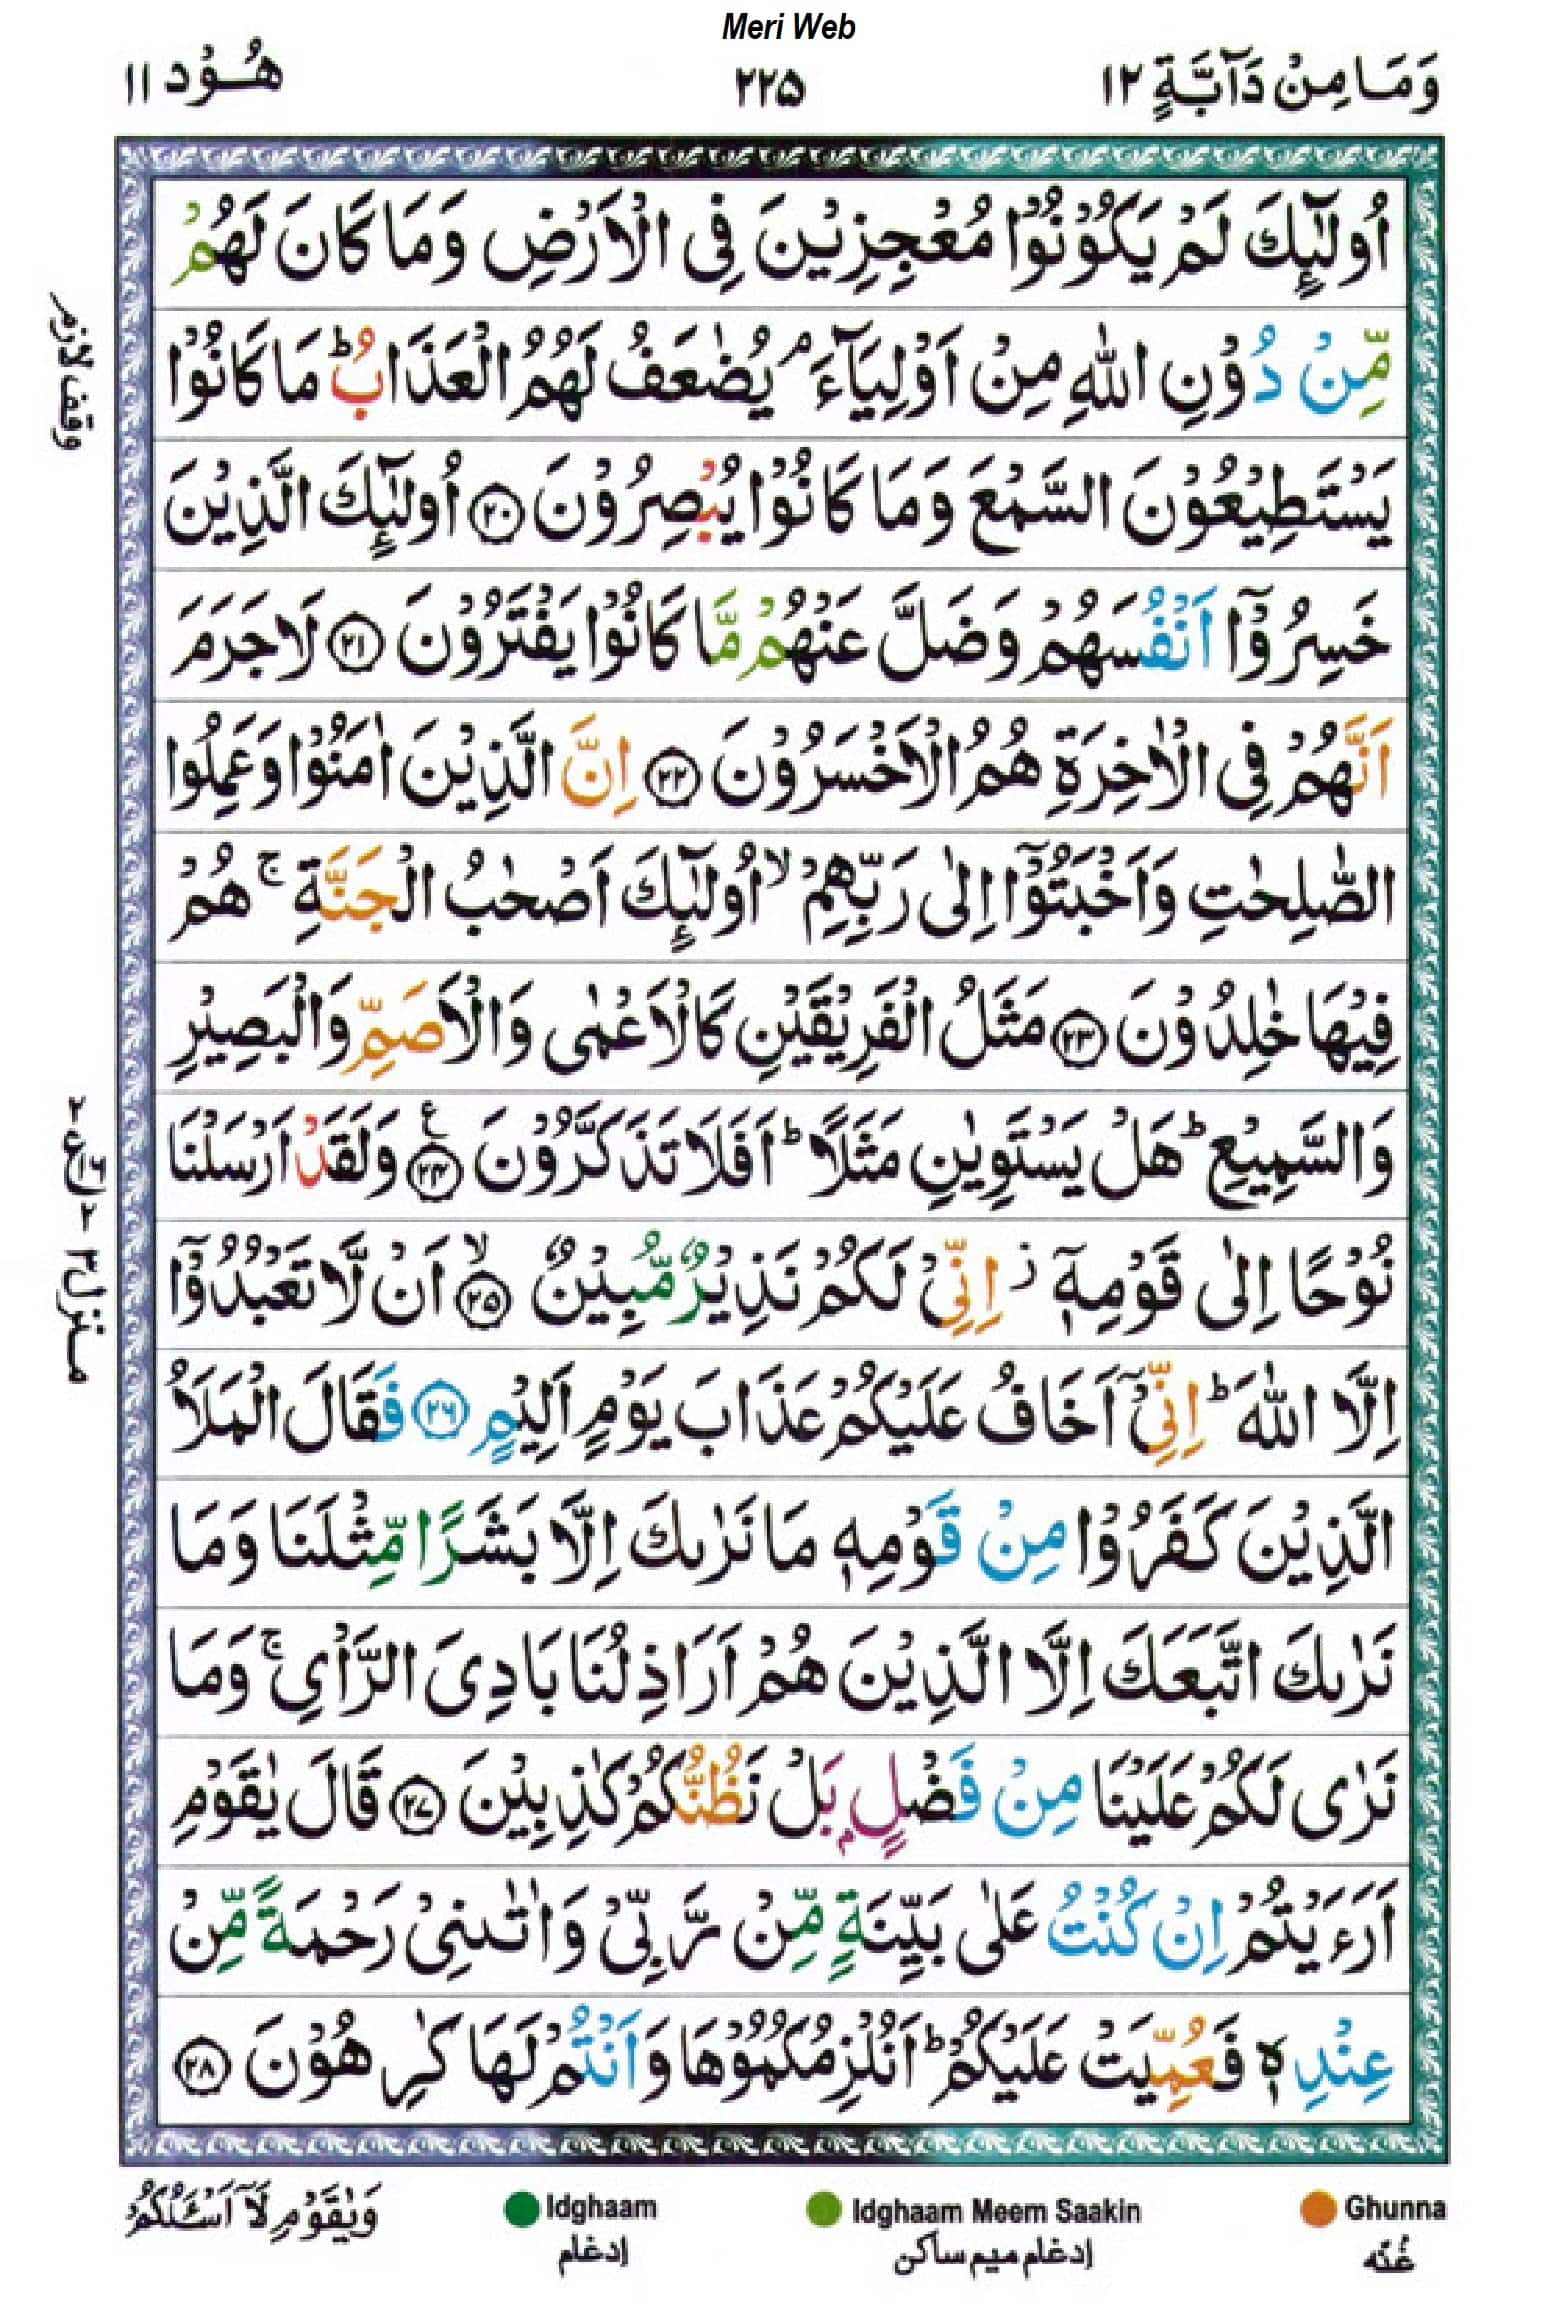 Meri Web
وَمَا مِنْ دَآبَّةٍ ۱۲
۲۲۵
هُوْد ۱۱
اُولٰٓئِكَ لَمْ يَكُوْنُوْا مُعْجِزِيْنَ فِى الْاَرْضِ وَمَا كَانَ لَهُمْ
مِّنْ دُوْنِ اللّٰهِ مِنْ اَوْلِيَآءَ ۘ يُضٰعَفُ لَهُمُ الْعَذَابُ ؕ مَا كَانُوْا
يَسْتَطِيْعُوْنَ السَّمْعَ وَمَا كَانُوْا يُبْصِرُوْنَ ۲۰ اُولٰٓئِكَ الَّذِيْنَ
خَسِرُوْۤا اَنْفُسَهُمْ وَضَلَّ عَنْهُمْ مَّا كَانُوْا يَفْتَرُوْنَ ۲۱ لَا جَرَمَ
اَنَّهُمْ فِى الْاٰخِرَةِ هُمُ الْاَخْسَرُوْنَ ۲۲ اِنَّ الَّذِيْنَ اٰمَنُوْا وَعَمِلُوا
الصّٰلِحٰتِ وَاَخْبَتُوْۤا اِلٰى رَبِّهِمْ ۙ اُولٰٓئِكَ اَصْحٰبُ الْجَنَّةِ ۚ هُمْ
فِيْهَا خٰلِدُوْنَ ۲۳ مَثَلُ الْفَرِيْقَيْنِ كَالْاَعْمٰى وَالْاَصَمِّ وَالْبَصِيْرِ
وَالسَّمِيْعِ ؕ هَلْ يَسْتَوِيٰنِ مَثَلًا ؕ اَفَلَا تَذَكَّرُوْنَ ۲۴ ع وَلَقَدْ اَرْسَلْنَا
نُوْحًا اِلٰى قَوْمِهٖۤ ز اِنِّىْ لَكُمْ نَذِيْرٌ مُّبِيْنٌ ۙ ۲۵ اَنْ لَّا تَعْبُدُوْۤا
اِلَّا اللّٰهَ ؕ اِنِّىْۤ اَخَافُ عَلَيْكُمْ عَذَابَ يَوْمٍ اَلِيْمٍ ۲۶ فَقَالَ الْمَلَاُ
الَّذِيْنَ كَفَرُوْا مِنْ قَوْمِهٖ مَا نَرٰىكَ اِلَّا بَشَرًا مِّثْلَنَا وَمَا
نَرٰىكَ اتَّبَعَكَ اِلَّا الَّذِيْنَ هُمْ اَرَاذِلُنَا بَادِىَ الرَّاْىِ ۚ وَمَا
نَرٰى لَكُمْ عَلَيْنَا مِنْ فَضْلٍۭ بَلْ نَظُنُّكُمْ كٰذِبِيْنَ ۲۷ قَالَ يٰقَوْمِ
اَرَءَيْتُمْ اِنْ كُنْتُ عَلٰى بَيِّنَةٍ مِّنْ رَّبِّىْ وَاٰتٰىنِىْ رَحْمَةً مِّنْ
عِنْدِهٖ فَعُمِّيَتْ عَلَيْكُمْ ؕ اَنُلْزِمُكُمُوْهَا وَاَنْتُمْ لَهَا كٰرِهُوْنَ ۲۸
وقف لازم
۲ ع ۲
منزل ۳
Ghunna
غُنّه
Idghaam Meem Saakin
إدغام ميم ساكن
Idghaam
إدغام
وَيٰقَوْمِ لَاۤ اَسْـَٔلُكُمْ